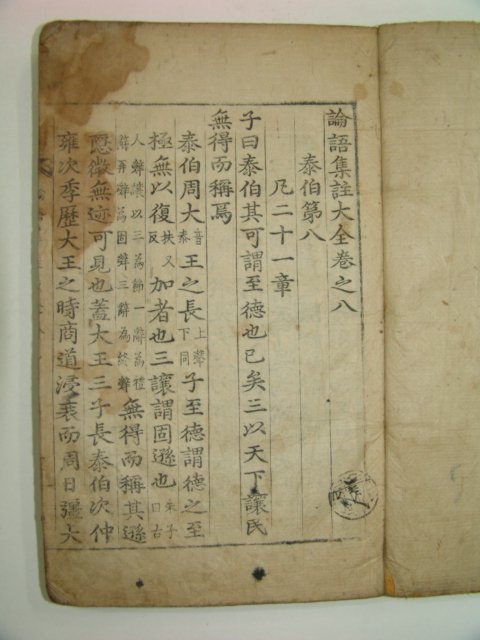 論語集註大全卷之八
泰伯第八
凡二十一章
子曰泰伯其可謂至德也已矣三以天下讓民
無得而稱焉
泰伯周大音泰王之長上聲下同子至德謂德之至
極無以復扶又反加者也三讓謂固遜也朱子曰古
人辭讓以三爲節一辭爲禮辭再辭爲固辭三辭爲終辭無得而稱其遜
隱微無迹可見也蓋大王三子長泰伯次仲
雍次季歷大王之時商道浸衰而周日彊大